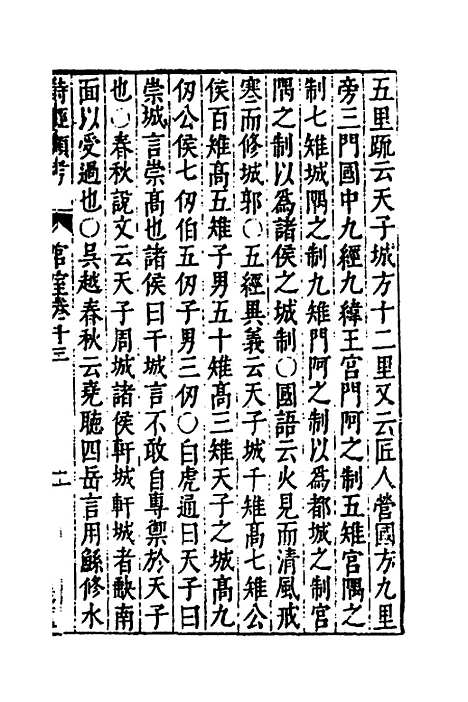 五里疏云天子城方十二里又云匠人營國方九里
旁三門國中九經九緯王宮門阿之制五雉宮隅之
制七雉城隅之制九雉門阿之制以爲都城之制宮
隅之制以爲諸侯之城制○國語云火見而清風戒
寒而修城郭○五經異義云天子城千雉高七雉公
侯百雉高五雉子男五十雉高三雉天子之城高九
仞公侯七仞伯五仞子男三仞○白虎通曰天子曰
崇城言崇高也諸侯曰干城言不敢自專禦於天子
也○春秋說文云天子周城諸侯軒城軒城者缺南
面以受過也○吳越春秋云堯聽四岳言用鯀修水
詩經類考 宮室卷十三